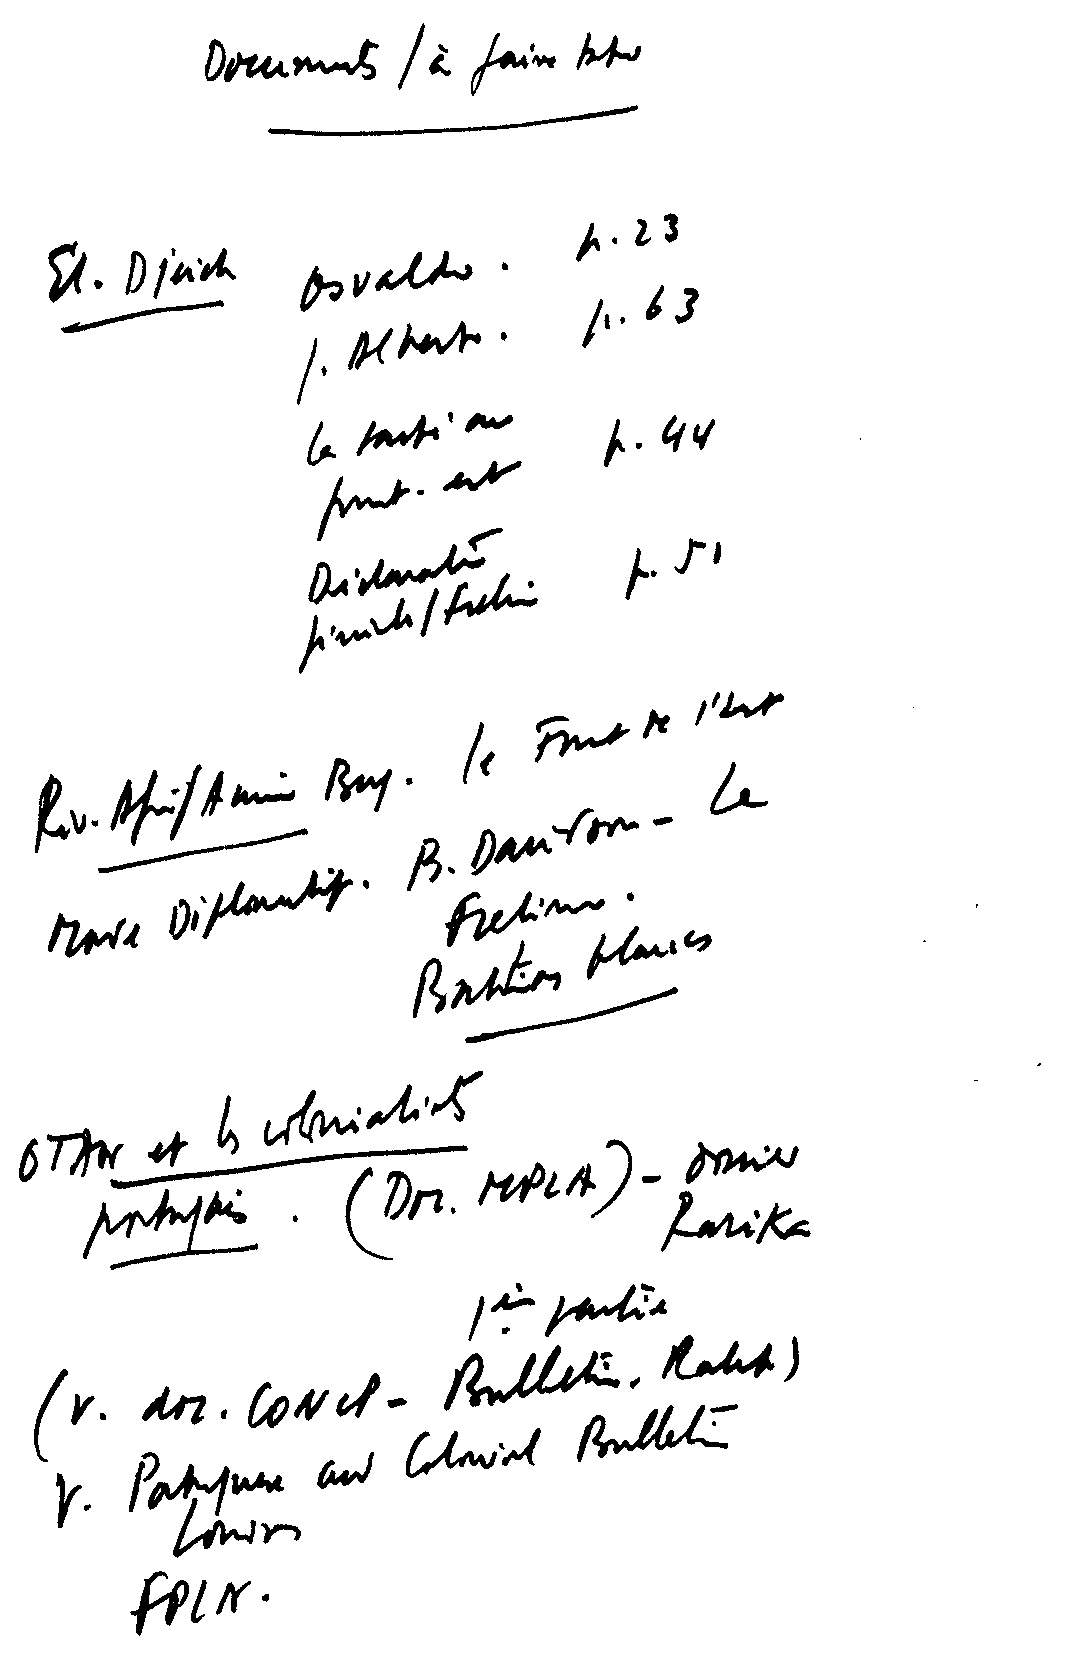 Documents / à faire
El. Djeich Osvaldo. p. 23
J. Alberto. p. 63
La sortie au
front. est p. 44
Déclaratiō
finale/Frelimo p. 51
Rév. Afric/Amin Bug. le Front de l'est
Monde Diplomatiq. B. Davidson – Le
Frelimo.
Bastions blancs
OTAN et les colonialists
portugais. (Doc. MPLA) – dossier
Rasika
1ère partie
(V. doc. CONCP – Bulletin. Rabat)
V. Portuguese and Colonial Bulletin
Londres
FPLN.